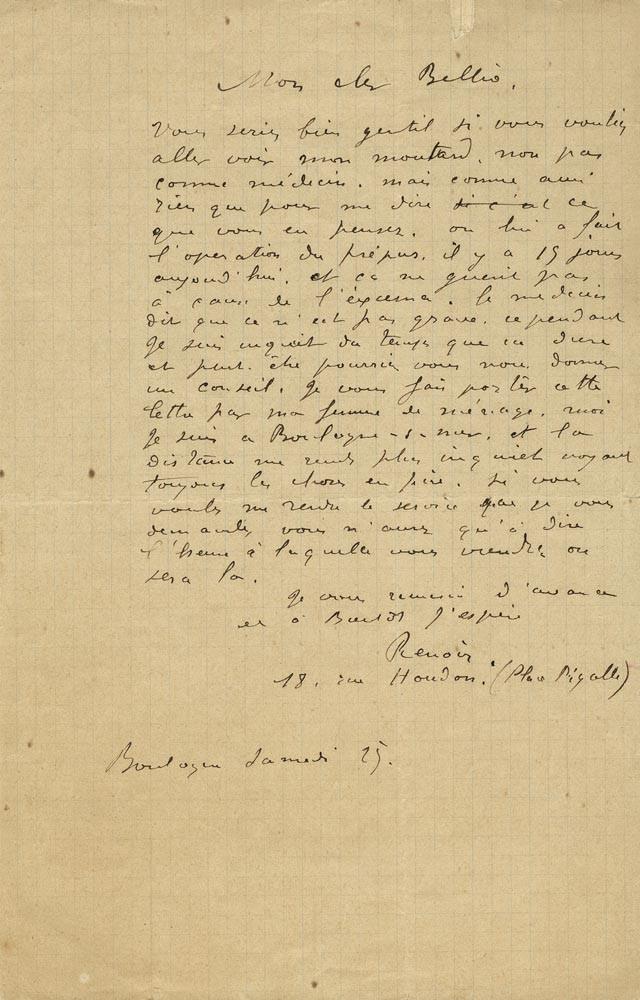 Mon cher Bellio,
Vous seriez bien gentil si vous vouliez
aller voir mon moutard, non pas
comme médecin. mais comme ami
rien que pour me dire si c'est ce
que vous en pensez. on lui a fait
l'operation du prépuce. il y a 15 jours
aujourd'hui. et ca ne guerit pas
à cause de l'éxcema. le medecin
dit que ce n'est pas grave. cependant
je suis inquiet du temps que ca dure
et peut-être pourriez vous nous donner
un conseil. je vous fais porter cette
lettre par ma femme de ménage. moi
je suis a Boulogne-s-mer. et la
distance me rend plus inquiet voyant
toujours les choses en pire. si vous
voulez me rendre le service que je vous
demande, vous n'aurez qu'à dire
l'heure à laquelle vous viendrez on
sera la.
je vous remercie d'avance
et à Bientôt j'espère
Renoir
18. rue Houdon. (Place Pigalle)
Boulogne Samedi 25.